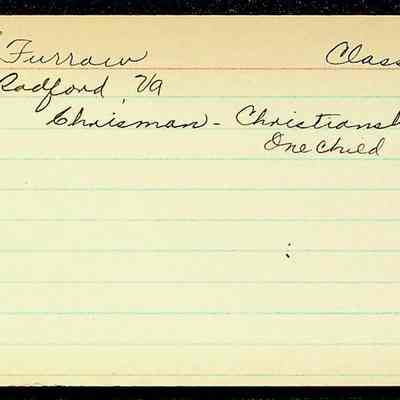 Furrow Class
Radford, Va
Chrisman - Christiansb
One Child